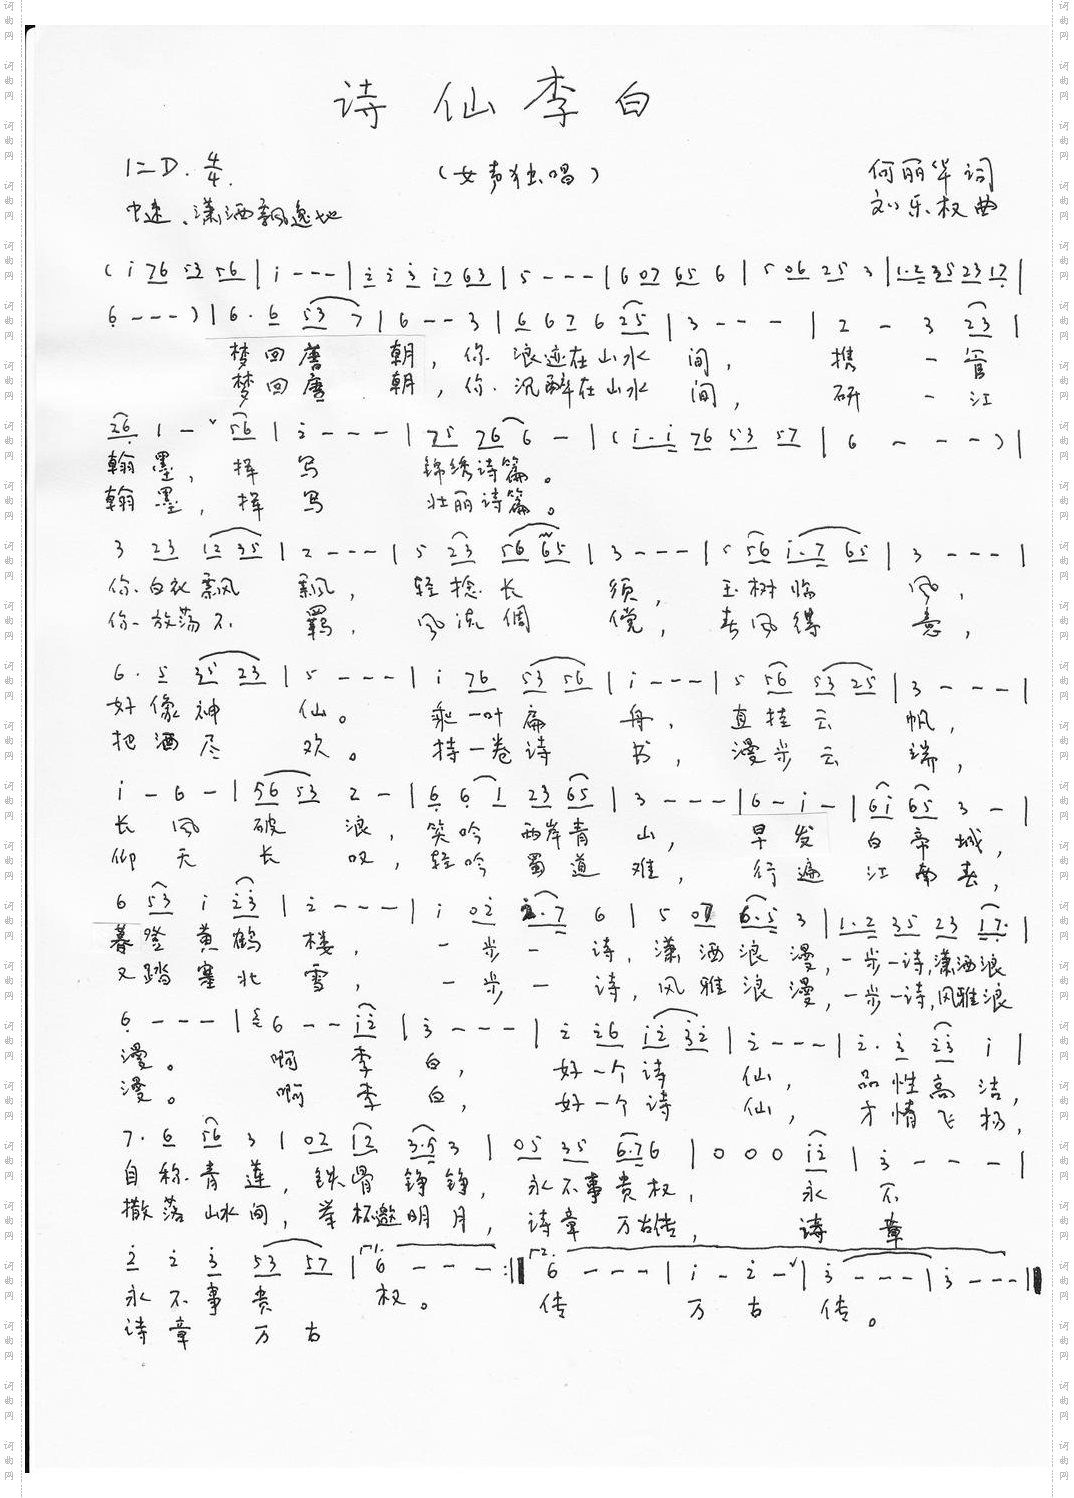 诗仙李白
1=D. 4/4.
(女声独唱)
何丽华 词
中速、潇洒飘逸地
刘乐权 曲
(i 76 53 56 | i - - - | 2 2 3 i7 63 | 5 - - - | 6 07 65 6 | 5 06 25 3 | 1·2 35 23 17 |
6 - - - ) | 6· 6 53 7 | 6 - - 3 | 6 6 7 6 25 | 3 - - - | 2 - 3 23 |
梦回唐 朝，你 浪迹在山水 间， 携 - 管
梦回唐 朝，你 沉醉在山水 间， 研 - 江
26 1 - ˅ 56 | 2 - - - | 75 76 6 - | (i·i 76 53 57 | 6 - - - ) |
翰墨，挥 写 锦绣诗篇。
翰墨，挥 写 壮丽诗篇。
3 23 12 35 | 2 - - - | 5 23 56 65 | 3 - - - | 5 56 i·7 65 | 3 - - - |
你白衣飘 飘， 轻捻长 须， 玉树临 风，
你放荡不 羁， 风流倜 傥， 春风得 意，
6· 5 35 23 | 5 - - - | i 76 53 56 | i - - - | 5 56 53 25 | 3 - - - |
好像神 仙。 乘一叶扁 舟， 直挂云 帆，
把酒尽 欢。 持一卷诗 书， 漫步云 端，
i - 6 - | 56 53 2 - | 6 6 1 23 65 | 3 - - - | 6 - i - | 6i 65 3 - |
长 风 破 浪，笑吟 两岸青 山， 早 发 白帝城，
仰 天 长 叹，轻吟 蜀道 难， 行 遍 江南春，
6 53 i 23 | 2 - - - | i 02 2·7 6 | 5 07 6·5 3 | 1·2 35 23 17 |
暮登黄鹤 楼， 一步一 诗，潇洒浪漫，一步一诗，潇洒浪
又踏塞北 雪， 一步一 诗，风雅浪漫，一步一诗，风雅浪
6 - - - | 6 - - i2 | 3 - - - | 2 26 i2 32 | 2 - - - | 2· 3 23 i |
漫。 啊 李 白， 好一个诗 仙， 品性高洁，
漫。 啊 李 白， 好一个诗 仙， 才情飞扬，
7· 6 56 3 | 02 i2 3·5 3 | 05 35 6·7 6 | 0 0 0 i2 | 3 - - - |
自称青莲，铁骨铮铮， 永不事贵权， 永 不
撒落山水间，举杯邀明月，诗章 万古传， 诗 章
2 2 3 53 57 | 1. 6 - - - :‖ 2. 6 - - - | i - 2 - ˅ | 3 - - - | 3 - - - ‖
永不事贵 权。 传 万古 传。
诗章 万古